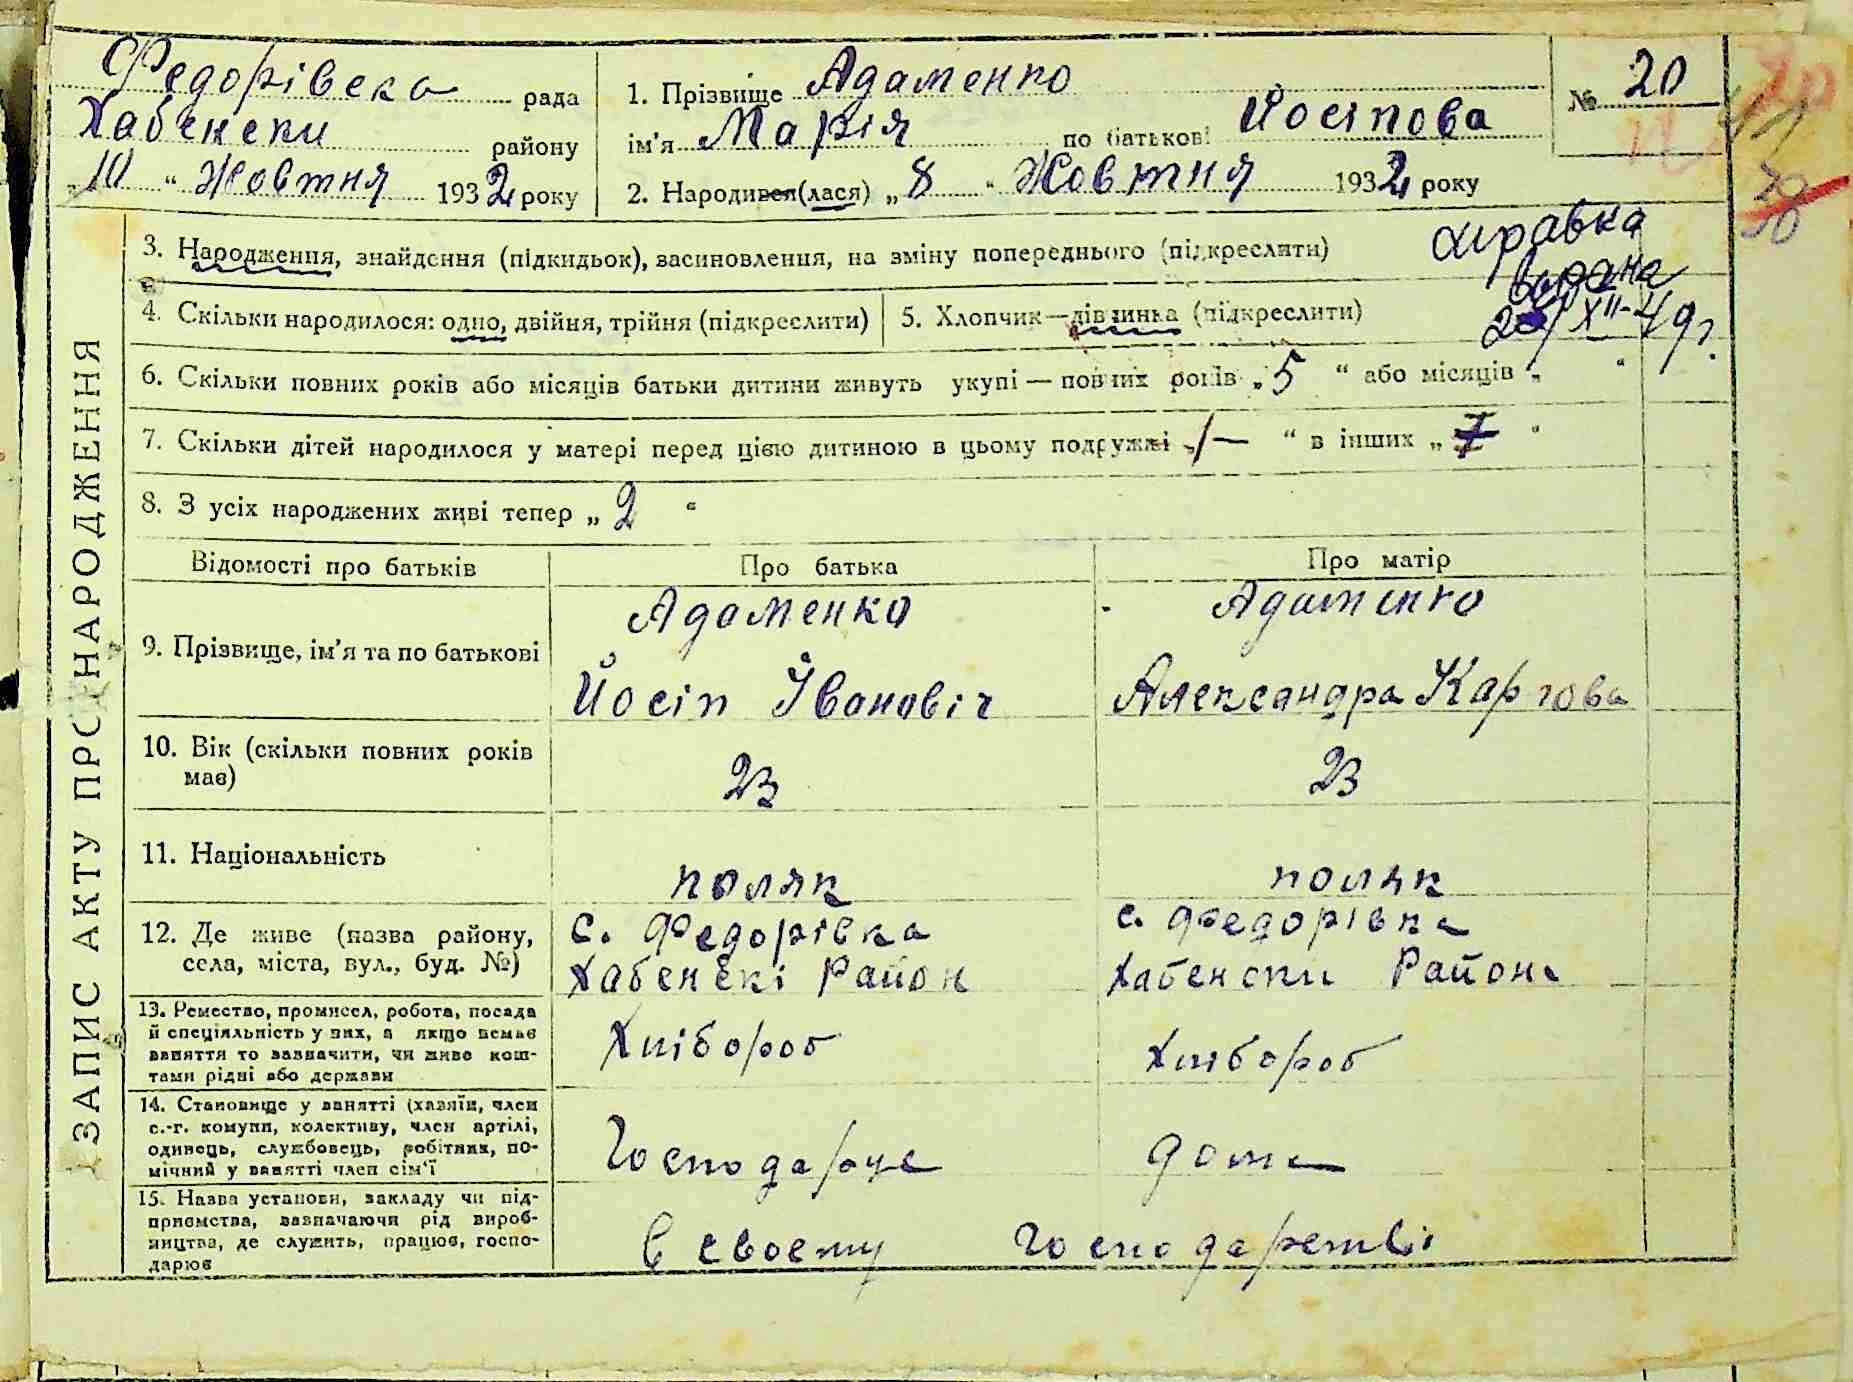 Федорівска рада
Хабенски району
„10“ Жовтня 1932 року
1. Прізвище Адаменко
ім'я Марія по батькові Йосіпова
2. Народився(лася) „8“ Жовтня 1932 року
№ 20
ЗАПИС АКТУ ПРО НАРОДЖЕННЯ
3. Народження, знайдення (підкидьок), засиновлення, на зміну попереднього (підкреслити)
справка
выдана
XII-49г.
4. Скільки народилося: одно, двійня, трійня (підкреслити)
5. Хлопчик—дівчинка (підкреслити)
6. Скільки повних років або місяців батьки дитини живуть укупі — повних років „5“ або місяців „ “
7. Скільки дітей народилося у матері перед цією дитиною в цьому подружжі „1—“ в інших „ “
8. З усіх народжених живі тепер „2“
Відомості про батьків
Про батька
Про матір
9. Прізвище, ім'я та по батькові
Адаменко
Йосіп Івановіч
Адаменко
Александра Карпова
10. Вік (скільки повних років
має)
23
23
11. Національність
поляк
поляк
12. Де живе (назва району,
села, міста, вул., буд. №)
с. Федорівка
Хабенскі Район
с. Федорівка
Хабенски Района
13. Ремество, промисел, робота, посада
й спеціяльність у них, а якщо немає
заняття то зазначити, чи живе кош-
тами рідні або держави
Хлібороб
Хлібороб
14. Становище у занятті (хазяїн, член
с.-г. комуни, колективу, член артілі,
одинець, службовець, робітник, по-
мічний у занятті член сім'ї
Господарує
дома
15. Назва установи, закладу чи під-
приємства, зазначаючи рід вироб-
ництва, де служить, працює, госпо-
дарює
в своему господарстві